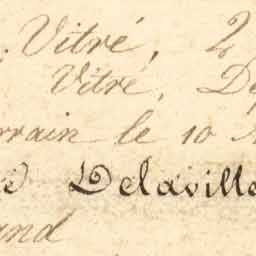 Vitré,
Vitré,
rrain le 10
Delaville
and